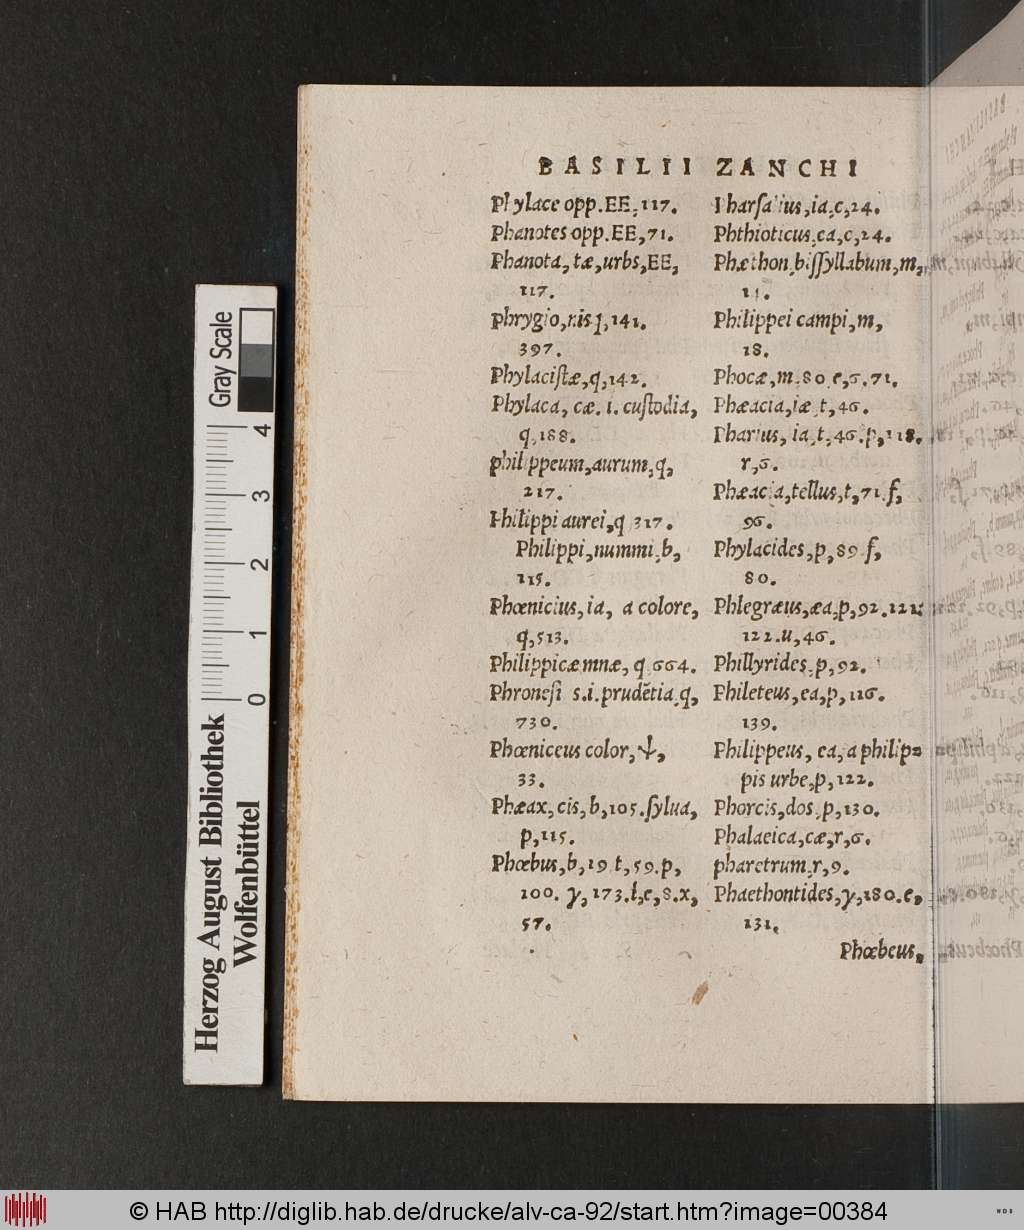 BASILII ZANCHI
Phylace opp. EE, 117.
Phanotes opp. EE, 71.
Phanota, tæ, urbs, EE,
117.
phrygio, nis q, 141.
397.
Phylaciſtæ, q, 142.
Phylaca, cæ. i. cuſtodia,
q, 188.
philippeum, aurum, q,
217.
Philippi aurei, q 317.
Philippi, nummi, b,
115.
Phœnicius, ia, a colore,
q, 513.
Philippicæ mnæ, q 664.
Phroneſi s. i. prudẽtia, q,
730.
Phœniceus color, ψ,
33.
Phæax, cis, b, 105. ſylua,
p, 115.
Phœbus, b, 19 t, 59. p,
100. γ, 173. l, e, 8. x,
57.
Pharſalius, ia, c, 24.
Phthioticus, ca, c, 24.
Phæthon biſſyllabum, m,
11.
Philippei campi, m,
18.
Phocæ, m. 80 e, 6. 71.
Phæacia, iæ t, 46.
Pharius, ia, t, 46. p, 118.
r, 6.
Phæacia, tellus, t, 71. f,
96.
Phylacides, p, 89 f,
80.
Phlegræus, æa, p, 92. 121.
122. u, 46.
Phillyrides, p, 92.
Phileteus, ea, p, 116.
139.
Philippeus, ea, a philip=
pis urbe, p, 122.
Phorcis, dos, p, 130.
Phalaeica, cæ, r, 6.
pharetrum, r, 9.
Phaethontides, γ, 180. e,
131.
Phœbeus,
Gray Scale
4
3
2
1
0
Herzog August Bibliothek
Wolfenbüttel
© HAB http://diglib.hab.de/drucke/alv-ca-92/start.htm?image=00384